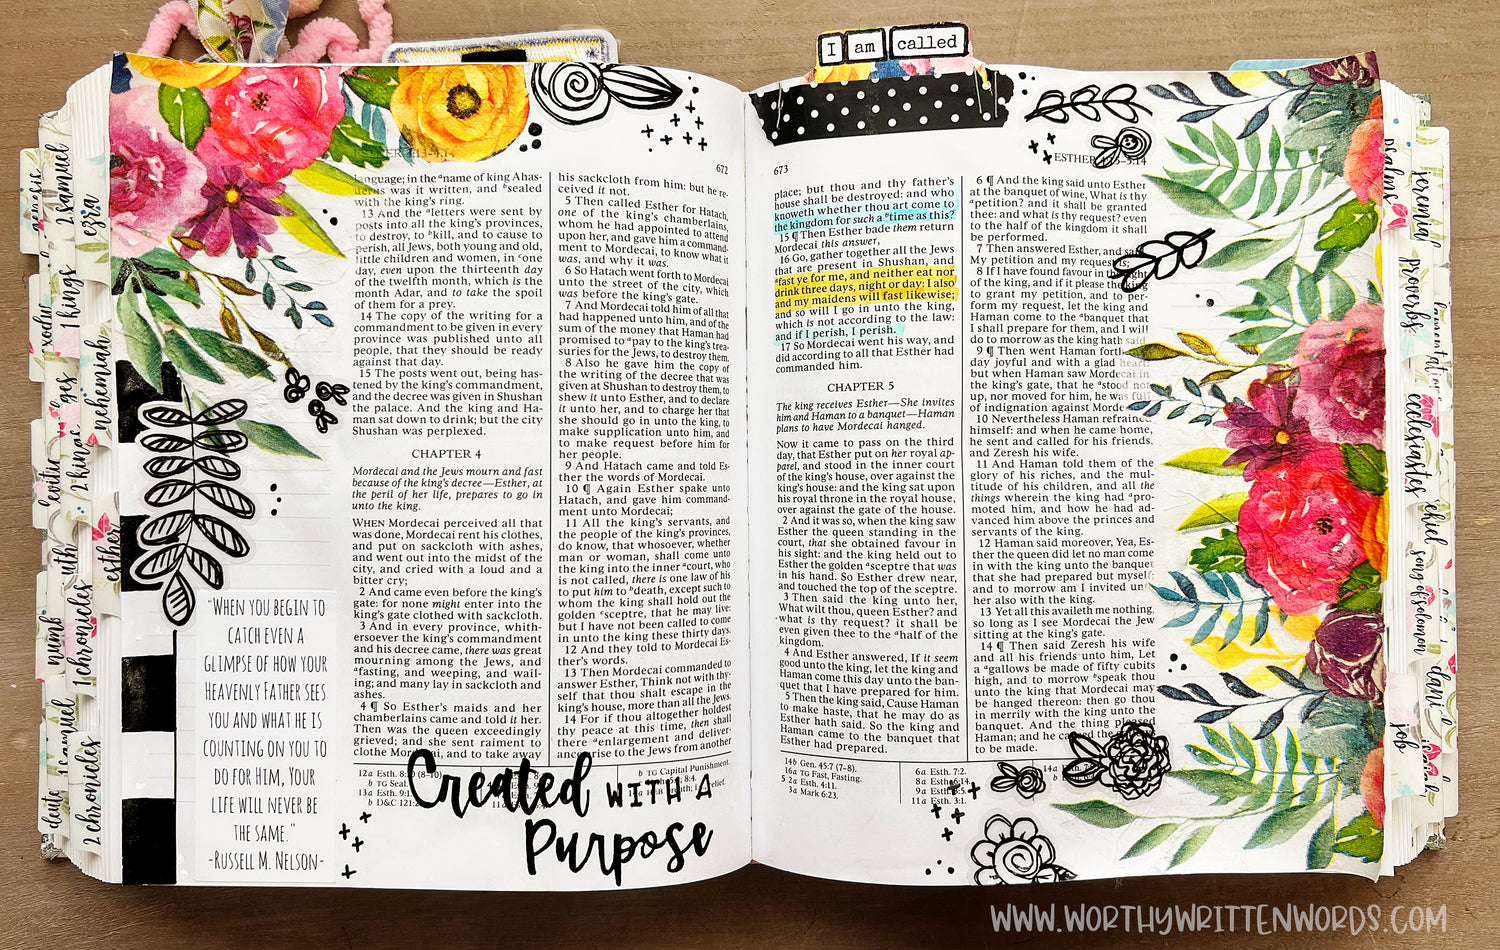 I am called
672
language; in the ᵃname of king Ahas-
uerus was it written, and ᵇsealed
with the king's ring.
13 And the ᵃletters were sent by
posts into all the king's provinces,
to destroy, to ᵇkill, and to cause to
perish, all Jews, both young and old,
little children and women, in ᶜone
day, even upon the thirteenth day
of the twelfth month, which is the
month Adar, and to take the spoil
of them for a prey.
14 The copy of the writing for a
commandment to be given in every
province was published unto all
people, that they should be ready
against that day.
15 The posts went out, being has-
tened by the king's commandment,
and the decree was given in Shushan
the palace. And the king and Ha-
man sat down to drink; but the city
Shushan was perplexed.
CHAPTER 4
Mordecai and the Jews mourn and fast
because of the king's decree—Esther, at
the peril of her life, prepares to go in
unto the king.
WHEN Mordecai perceived all that
was done, Mordecai rent his clothes,
and put on sackcloth with ashes,
and went out into the midst of the
city, and cried with a loud and a
bitter cry;
2 And came even before the king's
gate: for none might enter into the
king's gate clothed with sackcloth.
3 And in every province, whith-
ersoever the king's commandment
and his decree came, there was great
mourning among the Jews, and
ᵃfasting, and weeping, and wail-
ing; and many lay in sackcloth and
ashes.
4 ¶ So Esther's maids and her
chamberlains came and told it her.
Then was the queen exceedingly
grieved; and she sent raiment to
clothe and to take away
his sackcloth from him: but he re-
ceived it not.
5 Then called Esther for Hatach,
one of the king's chamberlains,
whom he had appointed to attend
upon her, and gave him a command-
ment to Mordecai, to know what it
was, and why it was.
6 So Hatach went forth to Mordecai
unto the street of the city, which
was before the king's gate.
7 And Mordecai told him of all that
had happened unto him, and of the
sum of the money that Haman had
promised to ᵃpay to the king's trea-
suries for the Jews, to destroy them.
8 Also he gave him the copy of
the writing of the decree that was
given at Shushan to destroy them, to
shew it unto Esther, and to declare
it unto her, and to charge her that
she should go in unto the king, to
make supplication unto him, and
to make request before him for
her people.
9 And Hatach came and told Es-
ther the words of Mordecai.
10 ¶ Again Esther spake unto
Hatach, and gave him command-
ment unto Mordecai;
11 All the king's servants, and
the people of the king's provinces,
do know, that whosoever, whether
man or woman, shall come unto
the king into the inner ᵃcourt, who
is not called, there is one law of his
to put him to ᵇdeath, except such to
whom the king shall hold out the
golden ᶜsceptre, that he may live:
but I have not been called to come
in unto the king these thirty days.
12 And they told to Mordecai Es-
ther's words.
13 Then Mordecai commanded to
answer Esther, Think not with thy-
self that thou shalt escape in the
king's house, more than all the Jews.
14 For if thou altogether holdest
thy peace at this time, then shall
there ᵃenlargement and deliver-
ance arise to the Jews from another
12a Esth. 8:
b TG Seal.
13a Esth. 9:
b D&C 121:
b TG Capital Punishment.
"When you begin to
catch even a
glimpse of how your
Heavenly Father sees
you and what He is
counting on you to
do for Him, Your
life will never be
the same."
-Russell M. Nelson-
Created with a
Purpose
673
ESTHER
place; but thou and thy father's
house shall be destroyed: and who
knoweth whether thou art come to
the kingdom for such a ᵇtime as this?
15 ¶ Then Esther bade them return
Mordecai this answer,
16 Go, gather together all the Jews
that are present in Shushan, and
ᵃfast ye for me, and neither eat nor
drink three days, night or day: I also
and my maidens will fast likewise;
and so will I go in unto the king,
which is not according to the law:
and if I perish, I perish.
17 So Mordecai went his way, and
did according to all that Esther had
commanded him.
CHAPTER 5
The king receives Esther—She invites
him and Haman to a banquet—Haman
plans to have Mordecai hanged.
Now it came to pass on the third
day, that Esther put on her royal ap-
parel, and stood in the inner court
of the king's house, over against the
king's house: and the king sat upon
his royal throne in the royal house,
over against the gate of the house.
2 And it was so, when the king saw
Esther the queen standing in the
court, that she obtained favour in
his sight: and the king held out to
Esther the golden ᵃsceptre that was
in his hand. So Esther drew near,
and touched the top of the sceptre.
3 Then said the king unto her,
What wilt thou, queen Esther? and
what is thy request? it shall be
even given thee to the ᵃhalf of the
kingdom.
4 And Esther answered, If it seem
good unto the king, let the king and
Haman come this day unto the ban-
quet that I have prepared for him.
5 Then the king said, Cause Haman
to make haste, that he may do as
Esther hath said. So the king and
Haman came to the banquet that
Esther had prepared.
6 ¶ And the king said unto Esther
at the banquet of wine, What is thy
ᵃpetition? and it shall be granted
thee: and what is thy request? even
to the half of the kingdom it shall
be performed.
7 Then answered Esther, and said,
My petition and my request is;
8 If I have found favour in the sight
of the king, and if it please the king
to grant my petition, and to per-
form my request, let the king and
Haman come to the ᵃbanquet that
I shall prepare for them, and I will
do to morrow as the king hath said.
9 ¶ Then went Haman forth
day joyful and with a glad heart:
but when Haman saw Mordecai in
the king's gate, that he ᵃstood not
up, nor moved for him, he was full
of indignation against Mordecai.
10 Nevertheless Haman refrained
himself: and when he came home,
he sent and called for his friends,
and Zeresh his wife.
11 And Haman told them of the
glory of his riches, and the mul-
titude of his children, and all the
things wherein the king had ᵃpro-
moted him, and how he had ad-
vanced him above the princes and
servants of the king.
12 Haman said moreover, Yea, Es-
ther the queen did let no man come
in with the king unto the banquet
that she had prepared but myself;
and to morrow am I invited unto
her also with the king.
13 Yet all this availeth me nothing,
so long as I see Mordecai the Jew
sitting at the king's gate.
14 ¶ Then said Zeresh his wife
and all his friends unto him, Let
a ᵃgallows be made of fifty cubits
high, and to morrow ᵇspeak thou
unto the king that Mordecai may
be hanged thereon: then go thou
in merrily with the king unto the
banquet. And the thing pleased
Haman; and he caused the
to be made.
14b Gen. 45:7 (7–8).
16a TG Fast, Fasting.
5 2a Esth. 4:11.
3a Mark 6:23.
6a Esth. 7:2.
8a Esth. 6:14.
9a Esth.
11a Esth. 3:1.
genesis
2 samuel
ezra
1 kings
nehemiah
2 kings
esther
ruth
numb
1 chronicles
1 samuel
2 chronicles
psalms
jeremiah
proverbs
ecclesiastes
song of solomon
job
WWW.WORTHYWRITTENWORDS.COM